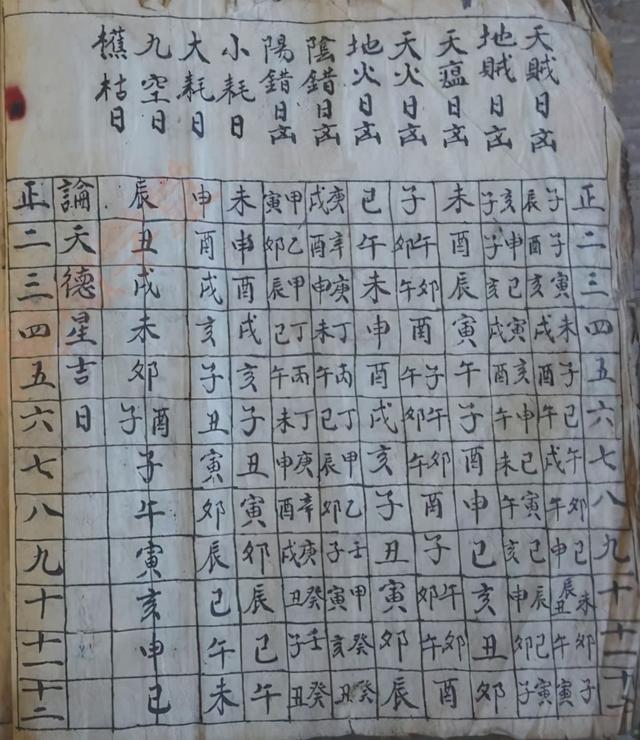 天賊日凶
地賊日凶
天瘟日凶
天火日凶
地火日凶
陰錯日凶
陽錯日凶
小耗日
大耗日
九空日
樵枯日
正 二 三 四 五 六 七 八 九 十 十一 十二
子辰 子酉 寅亥 未戌 子酉 巳午 午戌 卯午 巳申 未辰丑 卯午 子寅
亥子 申子 巳亥 寅戌 亥酉 申午 巳未 寅午 巳亥 辰申 巳卯 寅子
未 酉 辰 寅 午 子 酉 申 巳 亥 丑 卯
子 午卯 卯午 酉 子午 午卯 卯午 酉 子 午卯 卯午 酉
巳 午 未 申 酉 戌 亥 子 丑 寅 卯 辰
庚戌 辛酉 庚申 丁未 丙午 丁巳 甲辰 乙卯 壬子 甲寅 癸亥 癸丑
甲寅 乙卯 甲辰 丁巳 丙午 丁未 庚申 辛酉 庚戌 癸丑 壬子 癸丑
未 申 酉 戌 亥 子 丑 寅 卯 辰 巳 午
申 酉 戌 亥 子 丑 寅 卯 辰 巳 午 未
辰 丑 戌 未 卯 酉子 子 午 寅 亥 申 巳
論天德星吉日
正 二 三 四 五 六 七 八 九 十 十一 十二